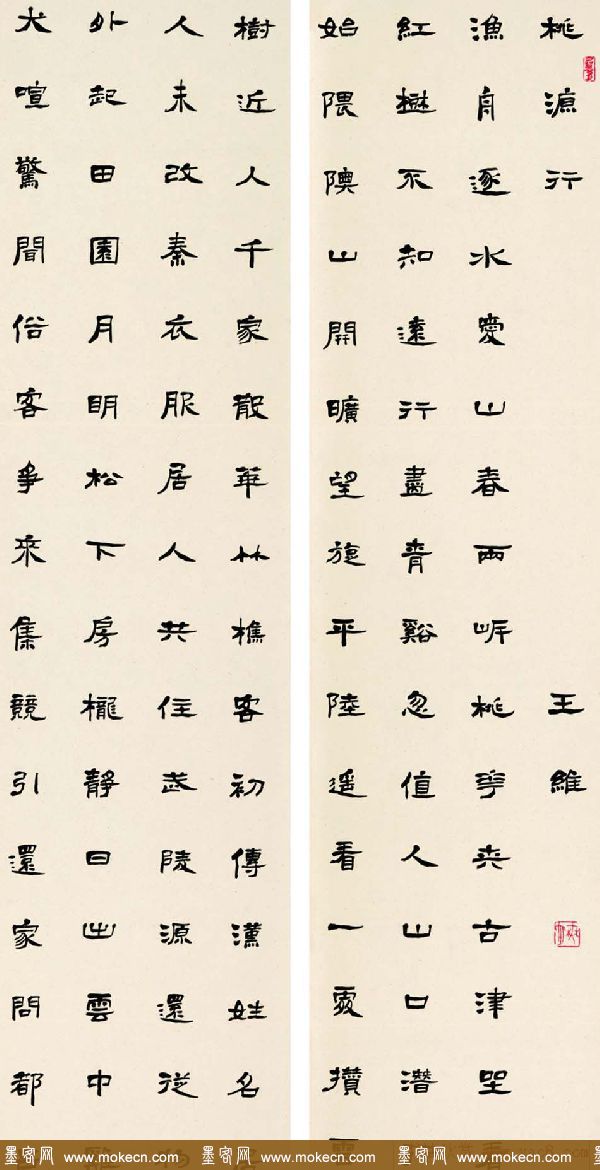 桃源行 王維
漁舟逐水愛山春兩岸桃花夾古津坐
紅樹不知遠行盡青谿忽值人山口潛
始隈隩山開曠望旋平陸遙看一處攢
樹近人千家散華林樵客初傳漢姓名
人未改秦衣服居人共住武陵源還從
外起田園月明松下房櫳靜日出雲中
犬喧驚聞俗客爭來集競引還家問都
墨客网 www.mokecn.com 墨客网 www.mokecn.com 墨客网 www.mokecn.com